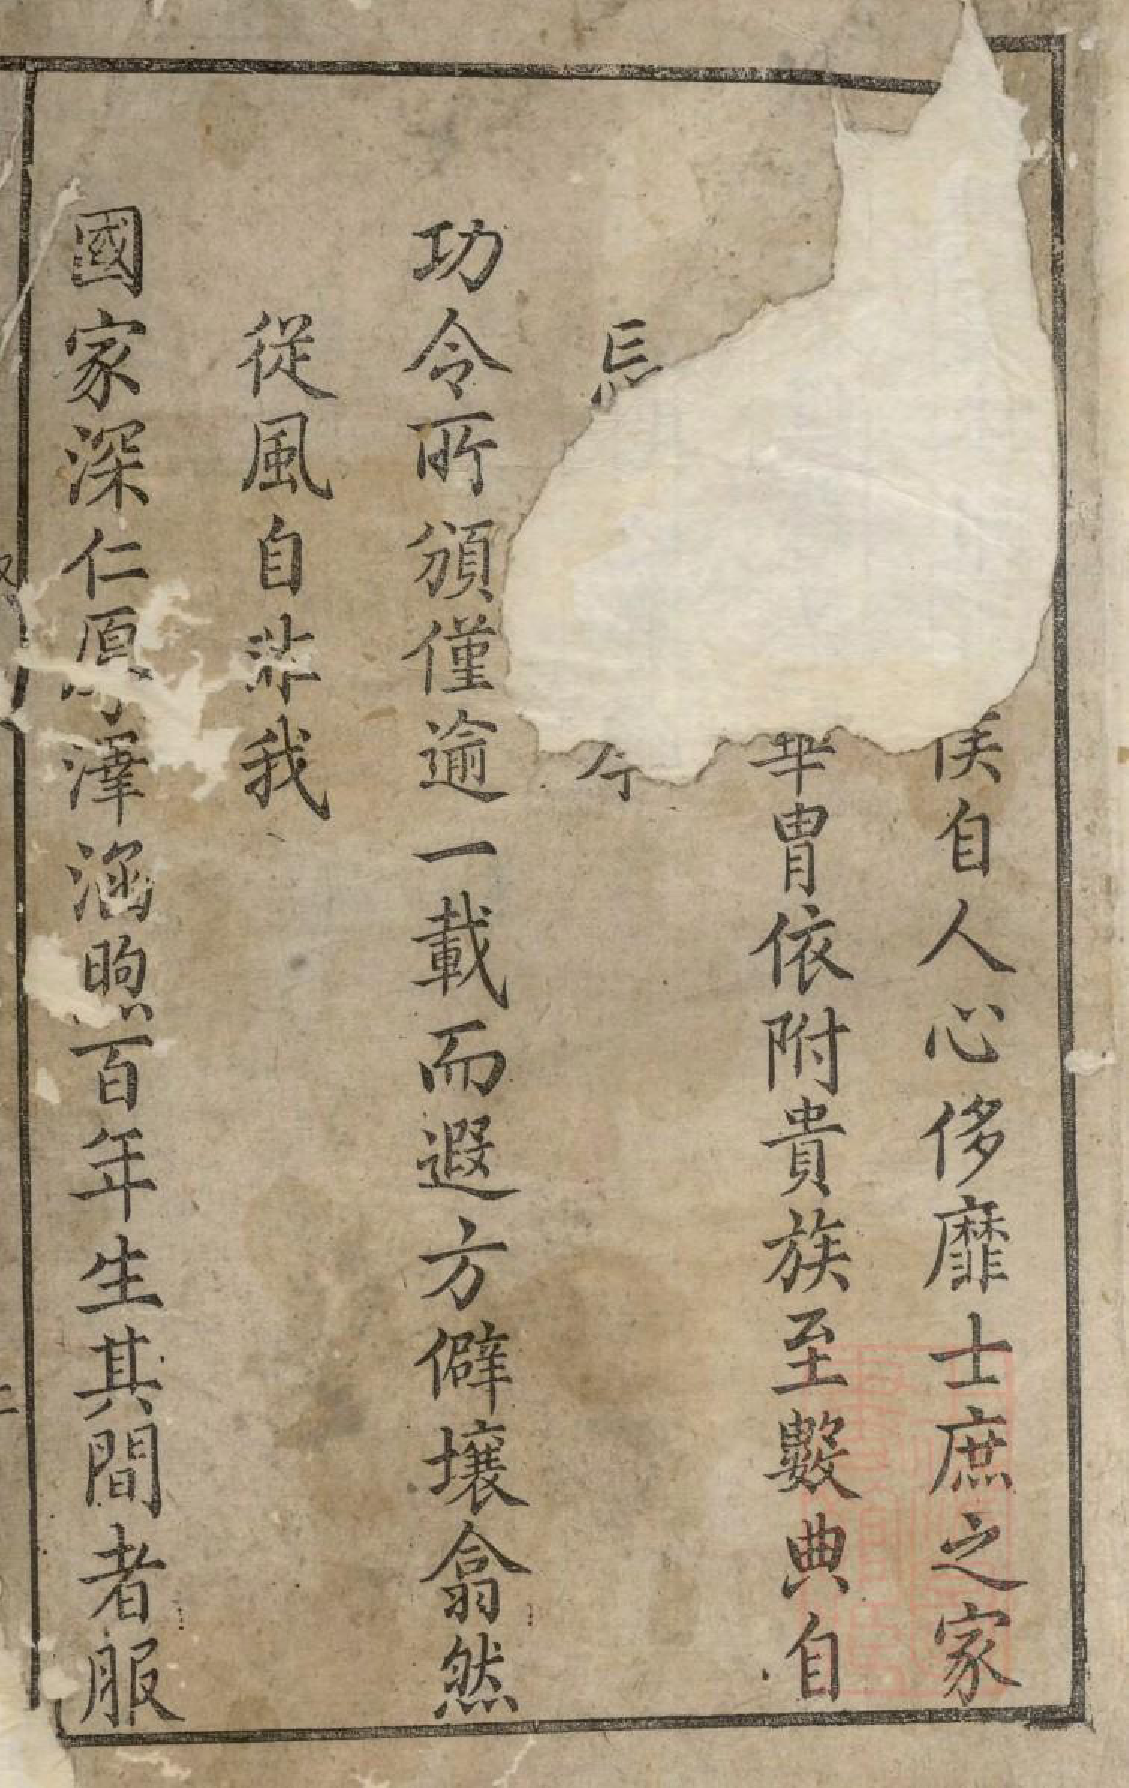 侯自人心侈靡士庶之家
華胄依附貴族至數典自
忘今
功令所頒僅逾一載而遐方僻壤翕然
從風自非我
國家深仁厚澤涵煦百年生其間者服